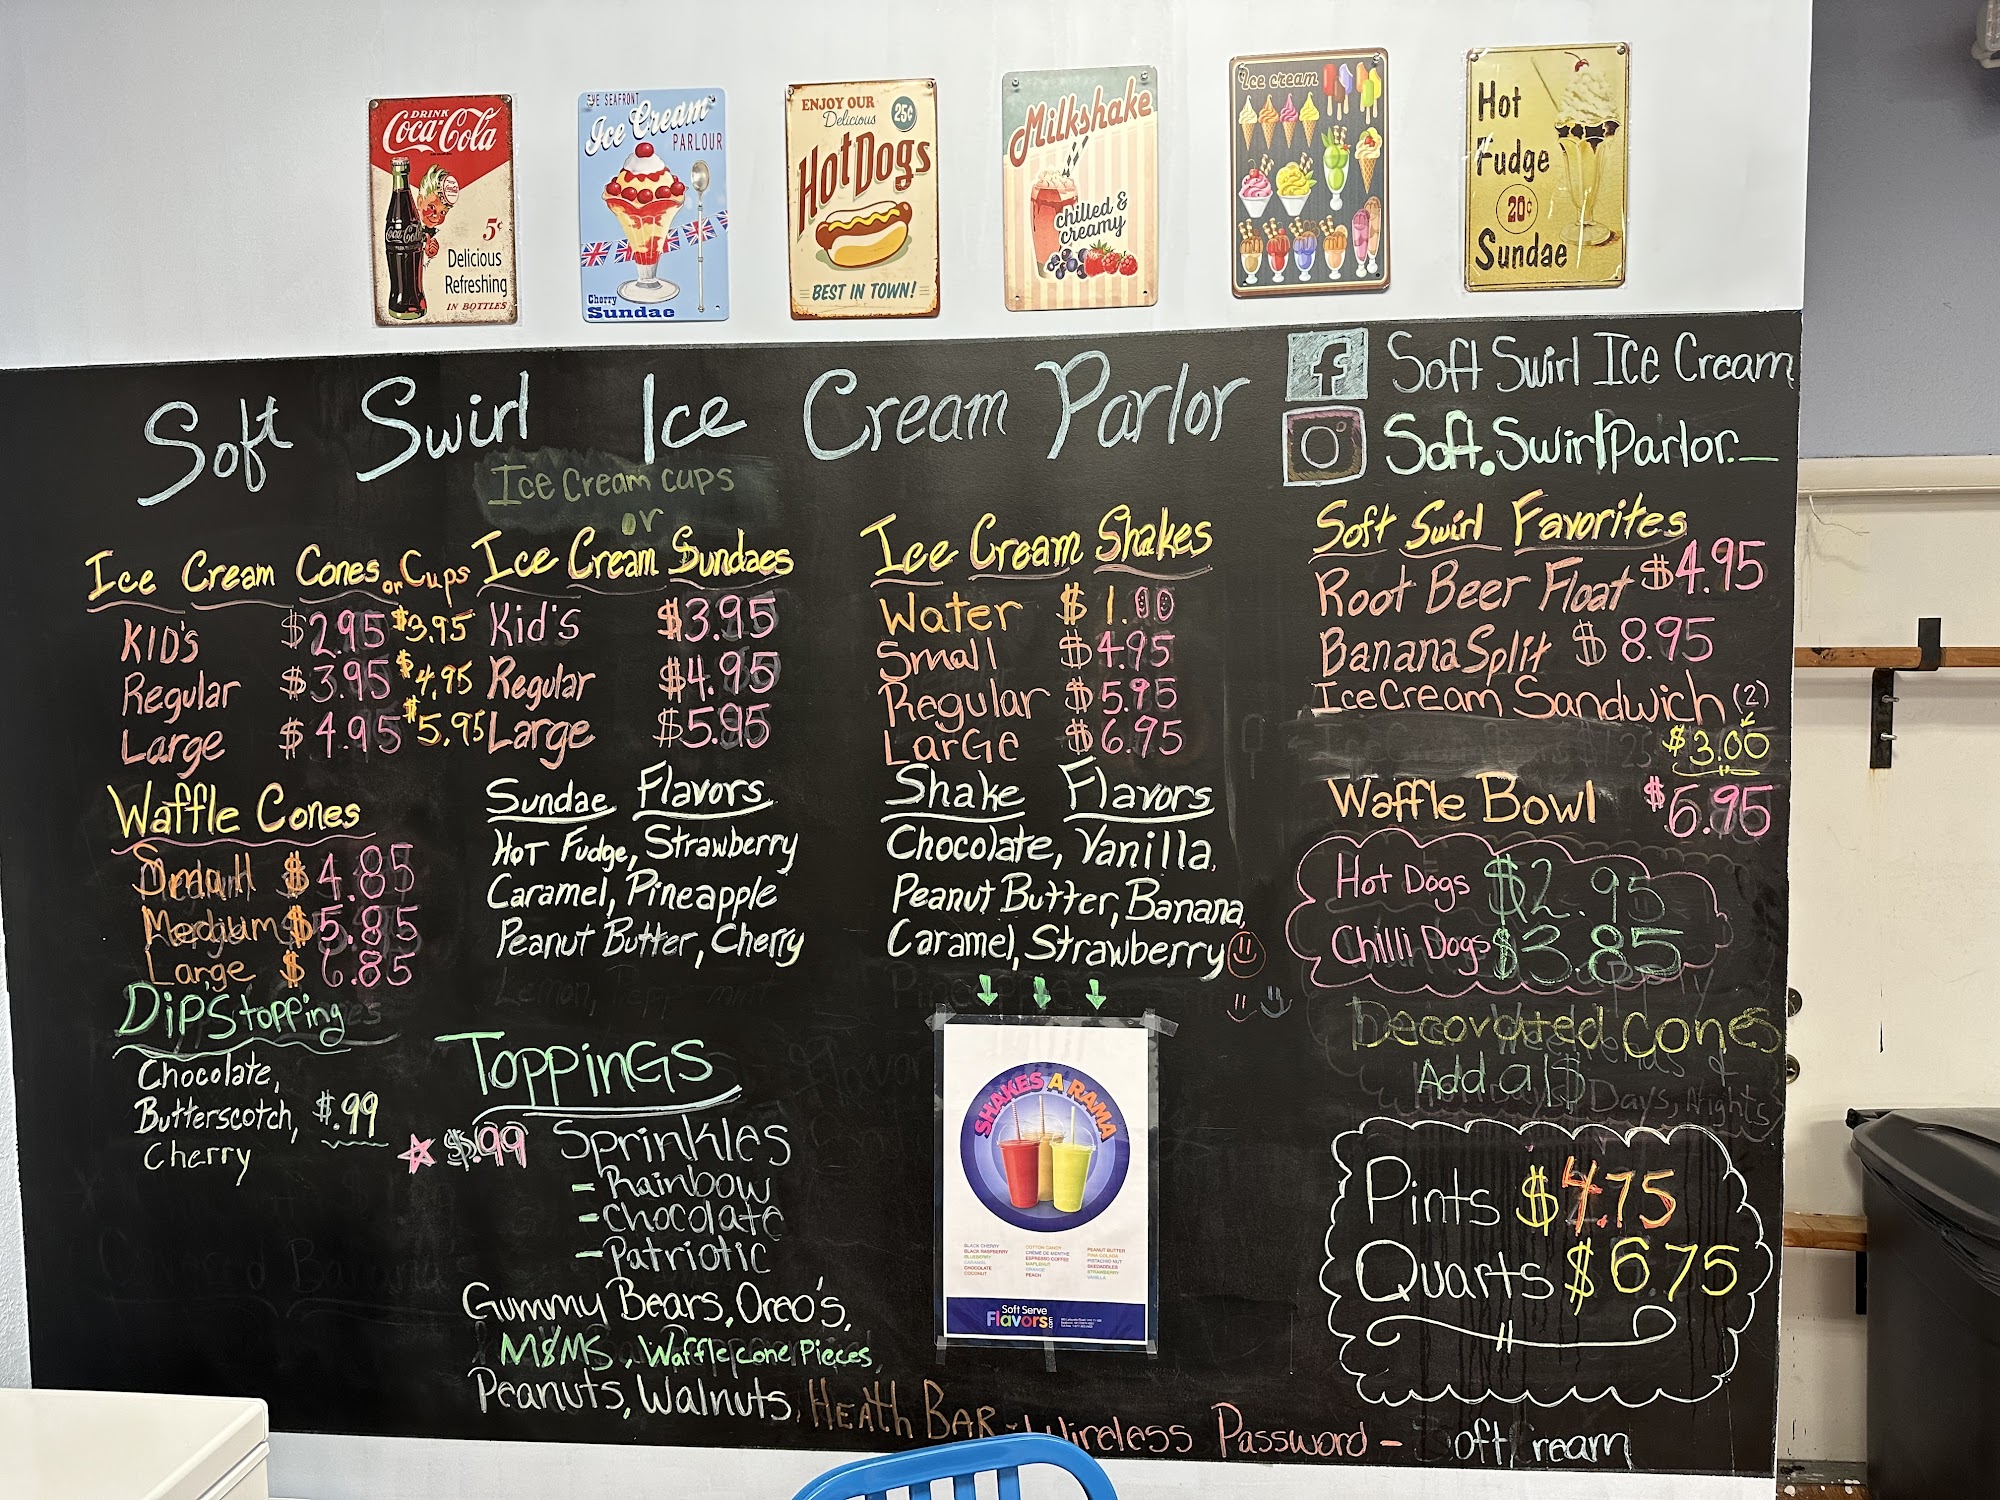 DRINK
Coca-Cola
5¢
Delicious
Refreshing
IN BOTTLES
THE SEAFRONT
Ice Cream
PARLOUR
Cherry
Sundae
ENJOY OUR
Delicious
25¢
HOT DOGS
BEST IN TOWN!
Milkshake
chilled &
creamy
Ice cream
Hot
Fudge
20¢
Sundae
Soft Swirl Ice Cream Parlor
f Soft Swirl Ice Cream
Soft.SwirlParlor._
Ice Cream Cones or Cups
KID'S $2.95 $3.95
Regular $3.95 $4.95
Large $4.95 $5.95
Waffle Cones
Small $4.85
Medium $5.85
Large $6.85
Dips topping
Chocolate,
Butterscotch, $.99
Cherry
Ice Cream cups
or
Ice Cream Sundaes
Kid's $3.95
Regular $4.95
Large $5.95
Sundae Flavors
Hot Fudge, Strawberry
Caramel, Pineapple
Peanut Butter, Cherry
Toppings
$.99 Sprinkles
- Rainbow
- Chocolate
- Patriotic
Gummy Bears, Oreo's,
M&MS, Waffle cone Pieces,
Peanuts, Walnuts, Heath Bar
Ice Cream Shakes
Water $1.00
Small $4.95
Regular $5.95
Large $6.95
Shake Flavors
Chocolate, Vanilla,
Peanut Butter, Banana,
Caramel, Strawberry
SHAKES A RAMA
BLACK CHERRY
BLACK RASPBERRY
BLUEBERRY
CARAMEL
CHOCOLATE
COCONUT
COTTON CANDY
CREME DE MENTHE
ESPRESSO COFFEE
MAPLENUT
ORANGE
PEACH
PEANUT BUTTER
PINA COLADA
PISTACHIO NUT
SKEDADDLES
STRAWBERRY
VANILLA
Soft Serve
Flavors
Soft Swirl Favorites
Root Beer Float $4.95
Banana Split $8.95
Ice Cream Sandwich (2)
$3.00
Waffle Bowl $6.95
Hot Dogs $2.95
Chilli Dogs $3.85
Decorated Cones
Add a 1$
Pints $4.75
Quarts $6.75
Wireless Password - SoftCream